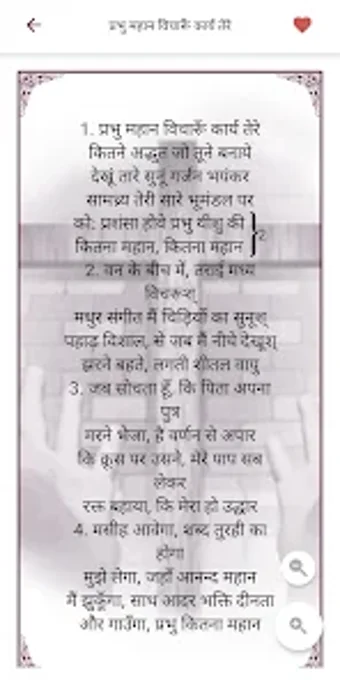 प्रभु महान विचारूँ कार्य तेरे
1. प्रभु महान विचारूँ कार्य तेरे
कितने अद्भुत जो तूने बनाये
देखूं तारे सुनूं गर्जन भयंकर
सामर्थ्य तेरी सारे भूमंडल पर
को: प्रशंसा होवे प्रभु यीशु की
कितना महान, कितना महान } 2
2. वन के बीच में, तराई मध्य
विचरूश्
मधुर संगीत मैं चिड़ियों का सुनूश्
पहाड़ विशाल, से जब मैं नीचे देखूश्
झरने बहते, लगती शीतल वायु
3. जब सोचता हूँ, कि पिता अपना
पुत्र
मरने भेजा, है वर्णन से अपार
कि क्रूस पर उसने, मेरे पाप सब
लेकर
रक्त बहाया, कि मेरा हो उद्धार
4. मसीह आवेगा, शब्द तुरही का
होगा
मुझे लेगा, जहाँ आनन्द महान
मैं झुकूँगा, साथ आदर भक्ति दीनता
और गाउँगा, प्रभु कितना महान